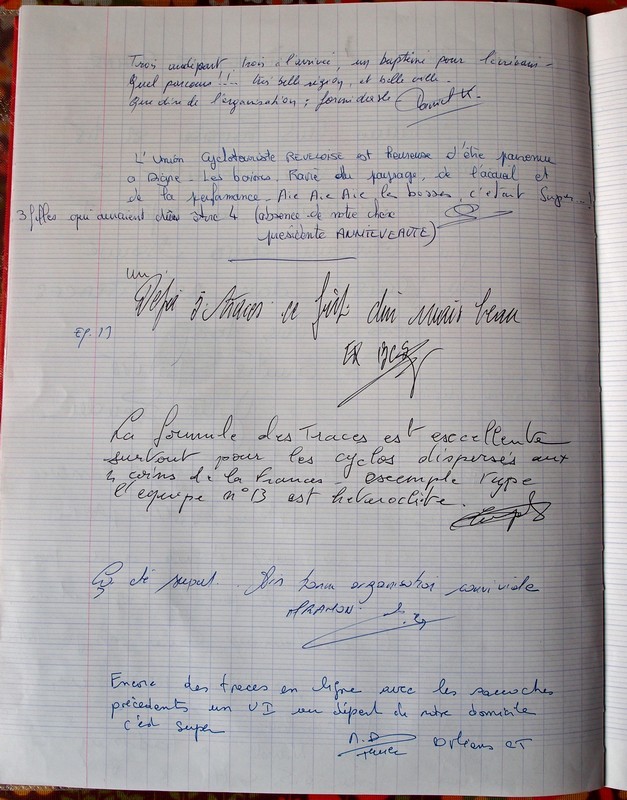 Trois au départ trois à l'arrivée, un baptême pour
Quel parcours !!! très belle région, et belle ville.
Que dire de l'organisation ; formidable
L'Union Cyclotouriste REVELOISE est heureuse d'être parvenue
a Digne - Les boinos, Ravie du paysage, de l'acceuil et
de la performance, Aie Aie Aie les bosses, c'était Super...!
3 filles qui auraient dûes être 4 (absence de notre chère
présidente ANNIE VEAUTE)
un
Défi à Traces ce fût dur mais beau
Eq. 13
La formule des Traces est excellente
surtout pour les cyclos dispersés aux
4 coins de la France - exemple type
l'equipe n°13 est hétéroclite.
Ça été super. organisation conviviale
ARAMON
Encore des traces en ligne avec les sacoches
précédents un VI au départ de notre domicile
c'est super
Orléans CT